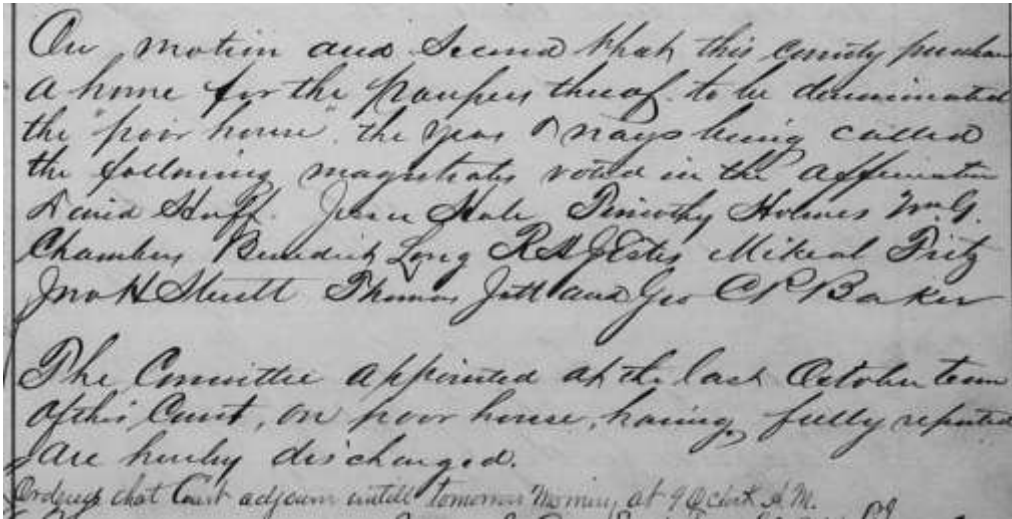 On motion and Second that this County purchase
a home for the paupers thereof. to be denominated
the "poor house". the yeas & nays being called
the following magistrates voted in the affirmative
David Huff. Jesse Hale Timothy Holmes Wm G.
Chambers Benedict Long R A J Estes Mikeal Fritz
Jno H Sterett Thomas Jett and Geo C P Baker
The Committee appointed at the last October term
of this Court, on poor house, having fully reported
are hereby discharged.
Ordered that Court adjourn untill tomorrow Morning at 9 O clock A.M.